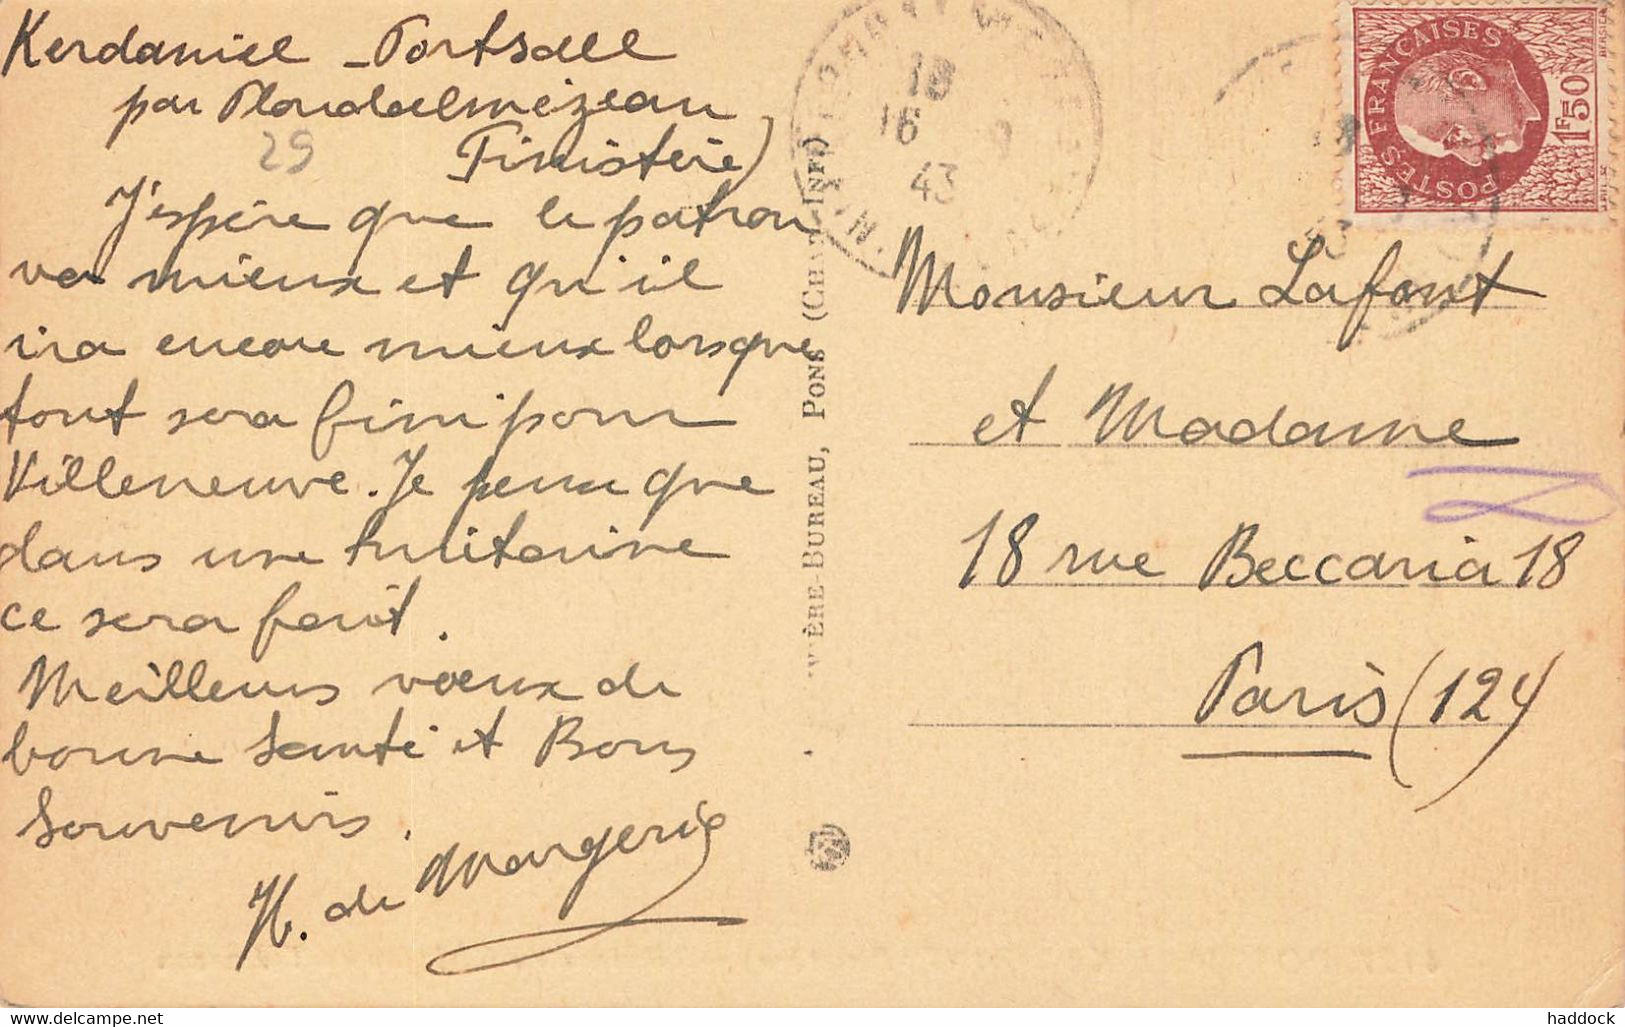 Kerdaniel - Portsall
par Ploudalmézeau
Finistère)
29
J'espère que le patron
va mieux et qu'il
ira encore mieux lorsque
tout sera fini pour
Villeneuve. Je pense que
dans une huitaine
ce sera fait.
Meilleurs vœux de
bonne santé et Bons
Souvenirs.
H. de Margerie
VIÈRE-BUREAU, PONS (CHAT-INF)
18
16
43
POSTES FRANÇAISES
1F50
Monsieur Lafont
et Madame
18 rue Beccaria 18
Paris (12e)
www.delcampe.net
haddock